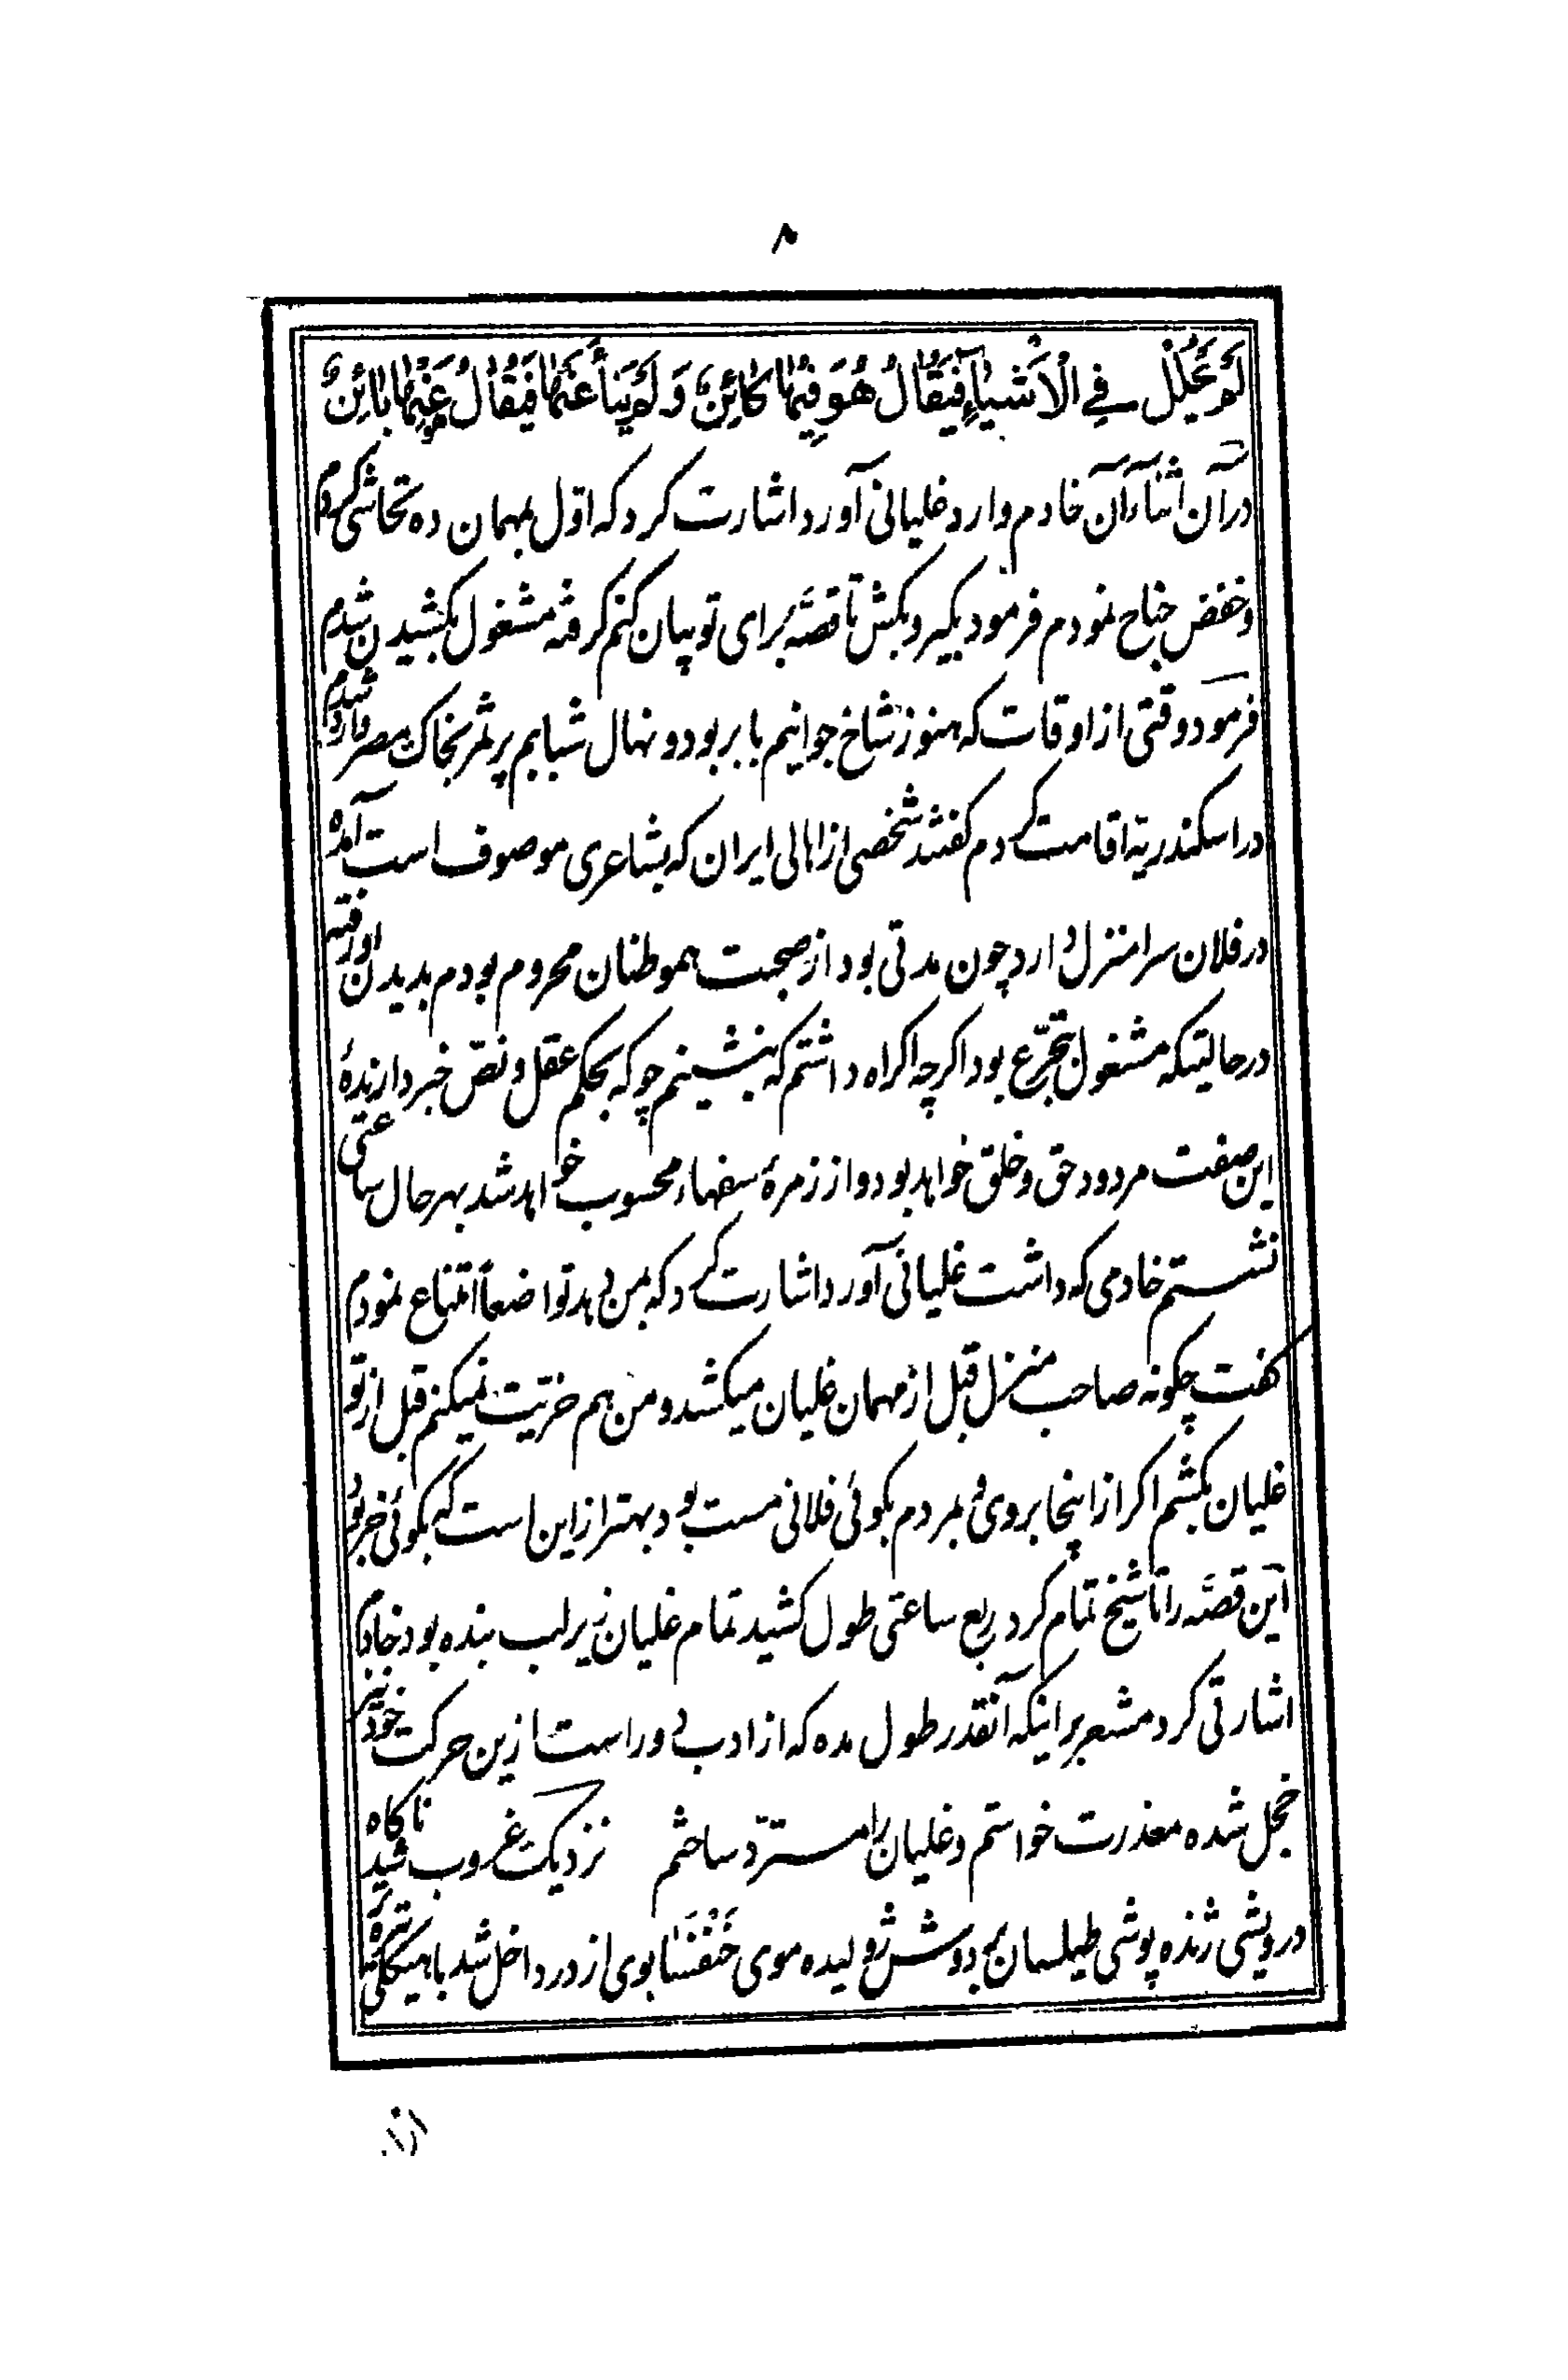 ۸
لَمْ يَحْلُلْ فِي الْأَشْيَاءِ فَيُقَالُ هُوَ فِيهَا كَائِنٌ وَلَمْ يَنْأَ عَنْهَا فَيُقَالُ عَنْهَا بَائِنٌ
در آن اثنا آن خادم وارد غلیانی آورد اشارت کرد که اول بمهمان ده تحاشی کردم
و خفض جناح نمودم فرمود بگیر و بکش تا قصّه برای تو بیان کنم گرفته مشغول بکشیدن شدم
فرمود وقتی از اوقات که هنوز شاخ جوانیم بابر بود و نهال شبابم پرثمر بخاک مصر وارد شدم
در اسکندریّه اقامت کردم گفتند شخصی از اهالی ایران که بشاعری موصوف است آمده
در فلان سرا منزل دارد چون مدتی بود از صحبت هموطنان محروم بودم بدیدن او رفته
در حالتیکه مشغول بتجرّع بود اگرچه اکراه داشتم که بنشینم چو که بحکم عقل و نصّ خبر دارندهٔ
این صفت مردود حق و خلق خواهد بود و از زمرهٔ سفهاء محسوب خواهد شد بهرحال ساعتی
نشستم خادمی که داشت غلیانی آورد اشارت کرد که بمن بدهد تواضعاً امتناع نمودم
گفت چگونه صاحب منزل قبل از مهمان غلیان میکشد و من هم خریّت نمیکنم قبل از تو
غلیان بکشم اگر از اینجا بروی و بمردم بگوئی فلانی مست بود بهتر از این است که بگوئی خر بود
این قصّه را تا شیخ تمام کرد ربع ساعتی طول کشید تمام غلیان زیر لب بنده بود خادم
اشارتی کرد مشعر بر اینکه آنقدر طول مده که از ادب دور است ازین حرکت خود نیز
خجل شده معذرت خواستم و غلیان را مسترّد ساختم نزدیک غروب شد ناگاه
درویشی ژنده پوشی طیلسان بر دوش ژولیده موی خَنْفَسَا بوی از در داخل شد با هیکلی